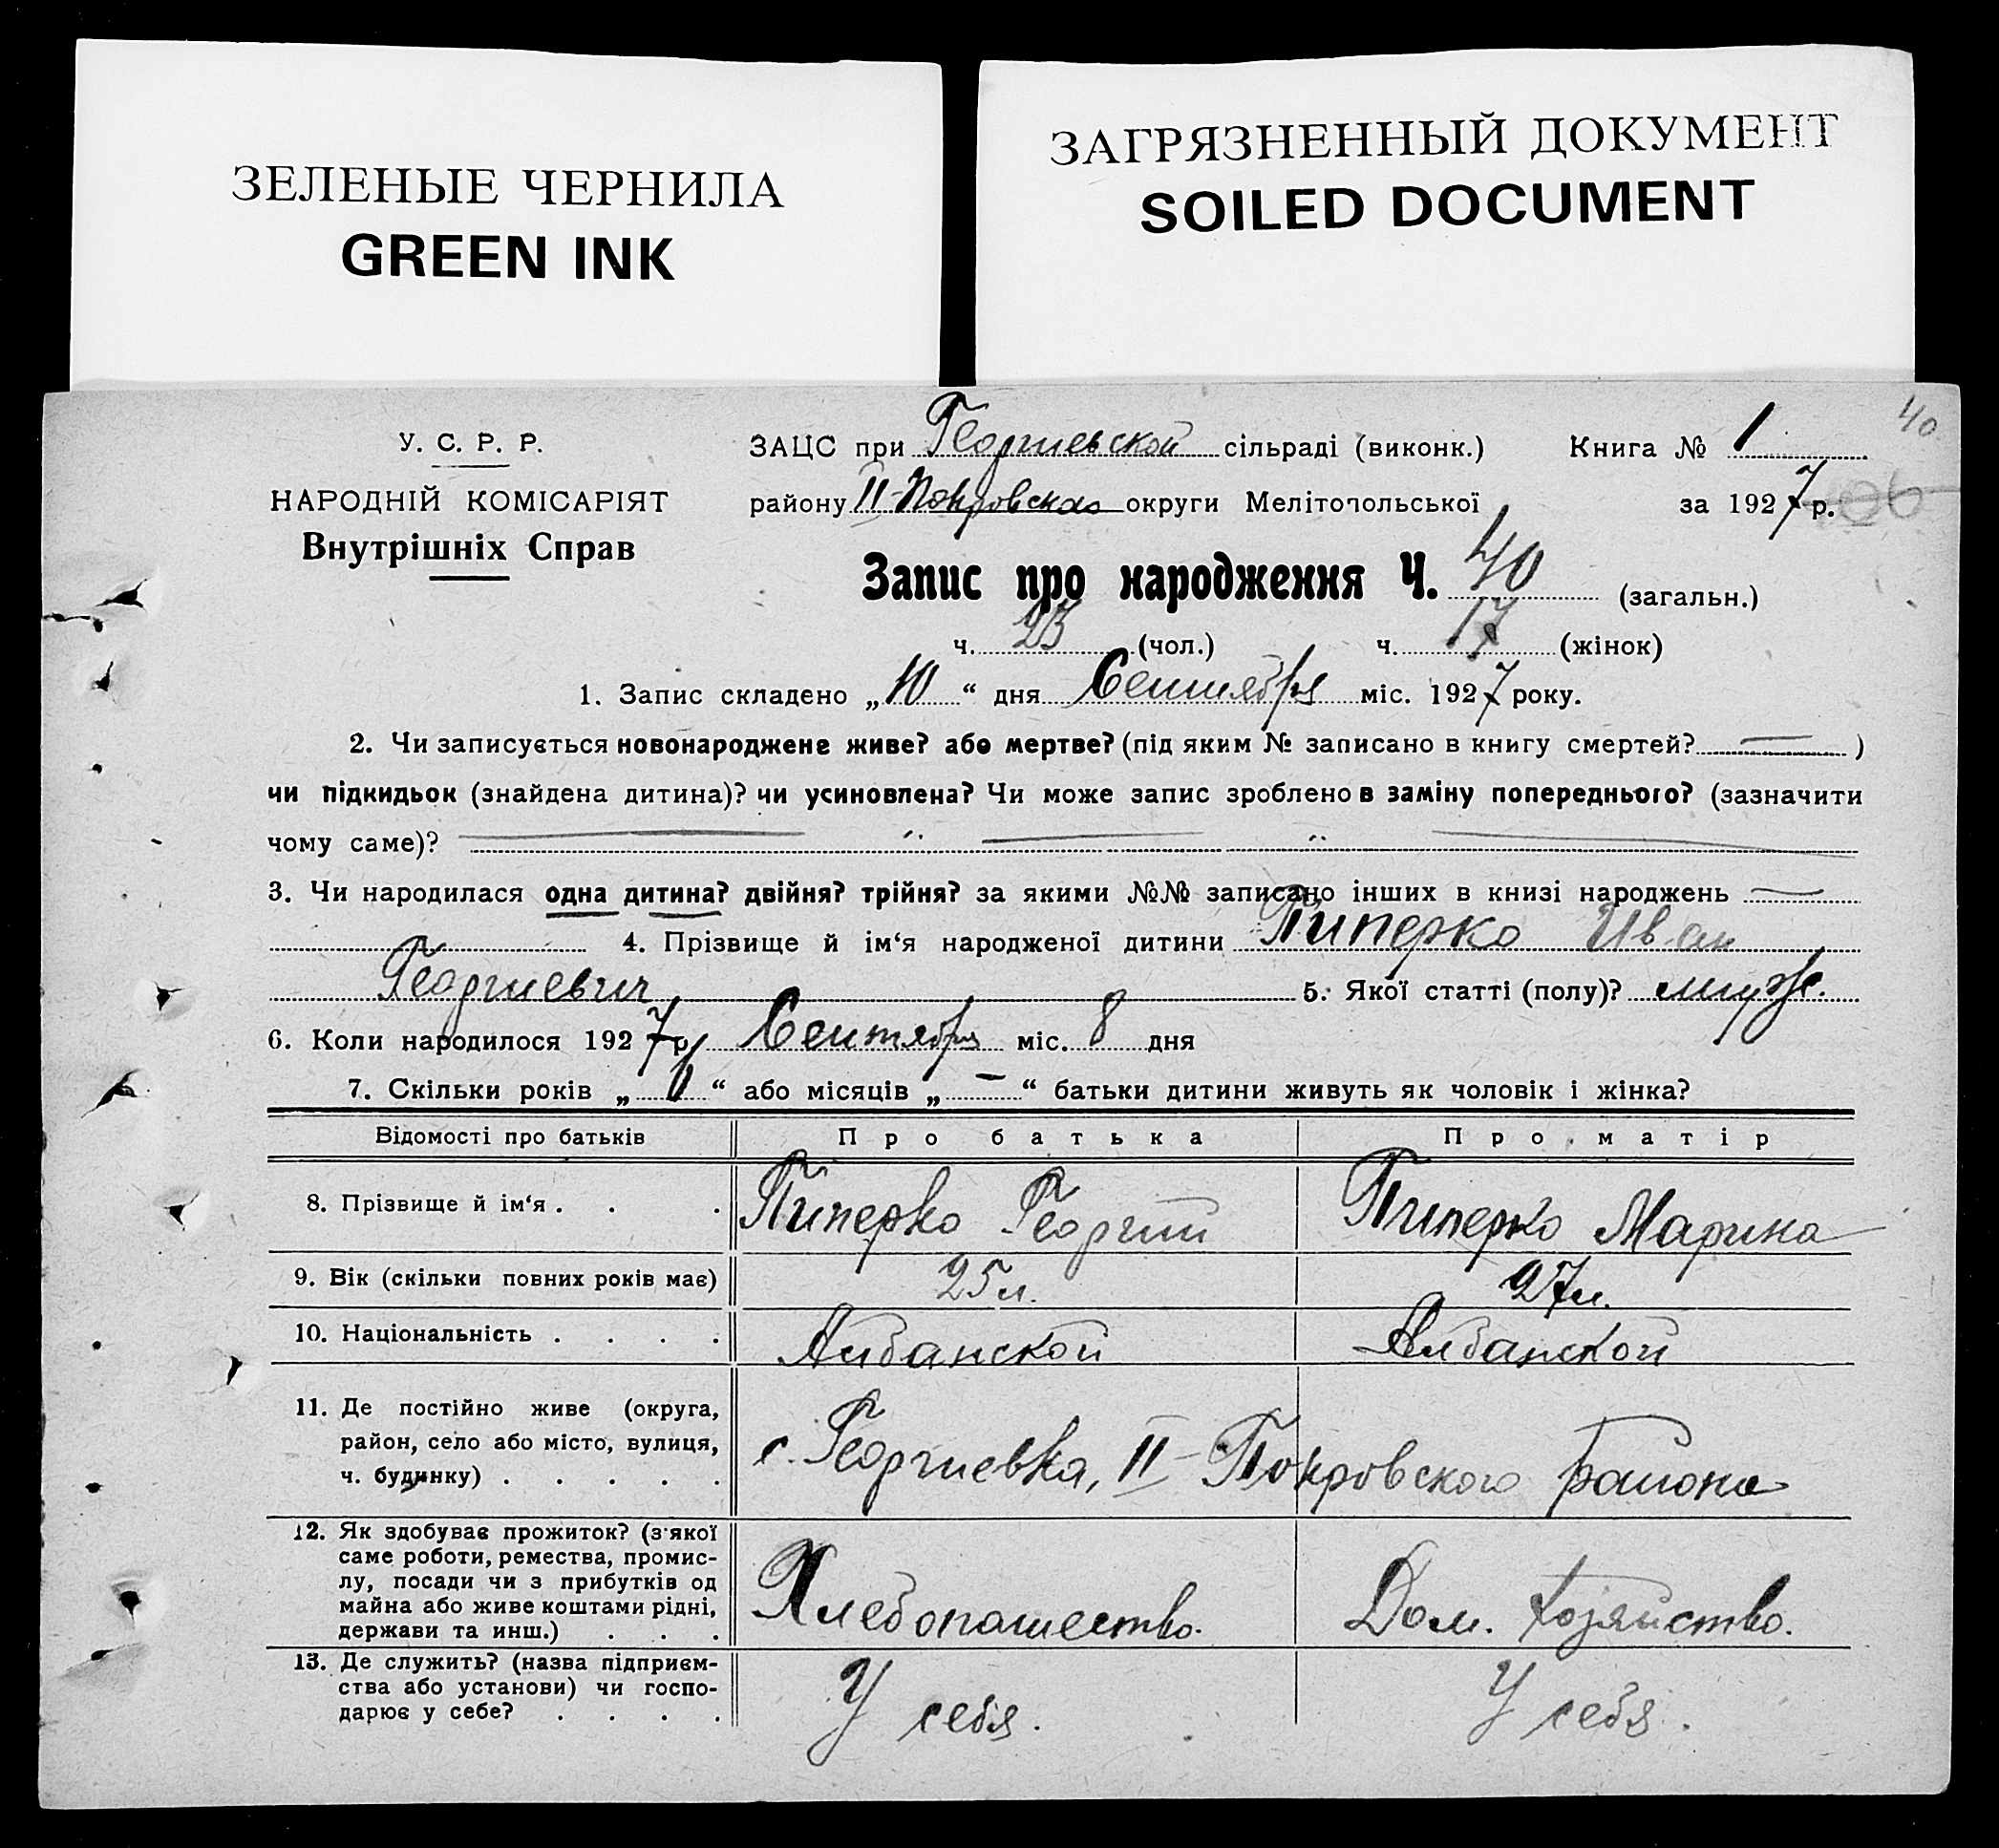 ЗЕЛЕНЫЕ ЧЕРНИЛА
GREEN INK
ЗАГРЯЗНЕННЫЙ ДОКУМЕНТ
SOILED DOCUMENT
40
У. С. Р. Р.
НАРОДНІЙ КОМІСАРІЯТ
Внутрішніх Справ
ЗАЦС при Георгиевской сільраді (виконк.) Книга № 1
району II-Покровска округи Мелітопольської за 1927 р.
Запис про народження Ч. 40 (загальн.)
ч. 23 (чол.) ч. 17 (жінок)
1. Запис складено „10“ дня Сентября міс. 1927 року.
2. Чи записується новонароджене живе? або мертве? (під яким № записано в книгу смертей? — )
чи підкидьок (знайдена дитина)? чи усиновлена? Чи може запис зроблено в заміну попереднього? (зазначити
чому саме)?
3. Чи народилася одна дитина? двійня? трійня? за якими №№ записано інших в книзі народжень —
4. Прізвище й ім‘я народженої дитини Пиперко Иван
Георгиевич 5. Якої статті (полу)? муж.
6. Коли народилося 1927 р. Сентября міс. 8 дня
7. Скільки років „ “ або місяців „—“ батьки дитини живуть як чоловік і жінка?
Відомості про батьків Про батька Про матір
8. Прізвище й ім‘я . . . Пиперко Георгий Пиперко Марина
9. Вік (скільки повних років має) 25 л. 27 л.
10. Національність . . . . Албанской Албанской
11. Де постійно живе (округа,
район, село або місто, вулиця,
ч. будинку) . . . . .
с. Георгиевка, II-Покровского района
12. Як здобуває прожиток? (з'якої
саме роботи, ремества, промис-
лу, посади чи з прибутків од
майна або живе коштами рідні,
держави та инш.) . . .
Хлебопашество. Дом. хозяйство.
13. Де служить? (назва підприєм-
ства або установи) чи госпо-
дарює у себе? . . . .
У себя. У себя.